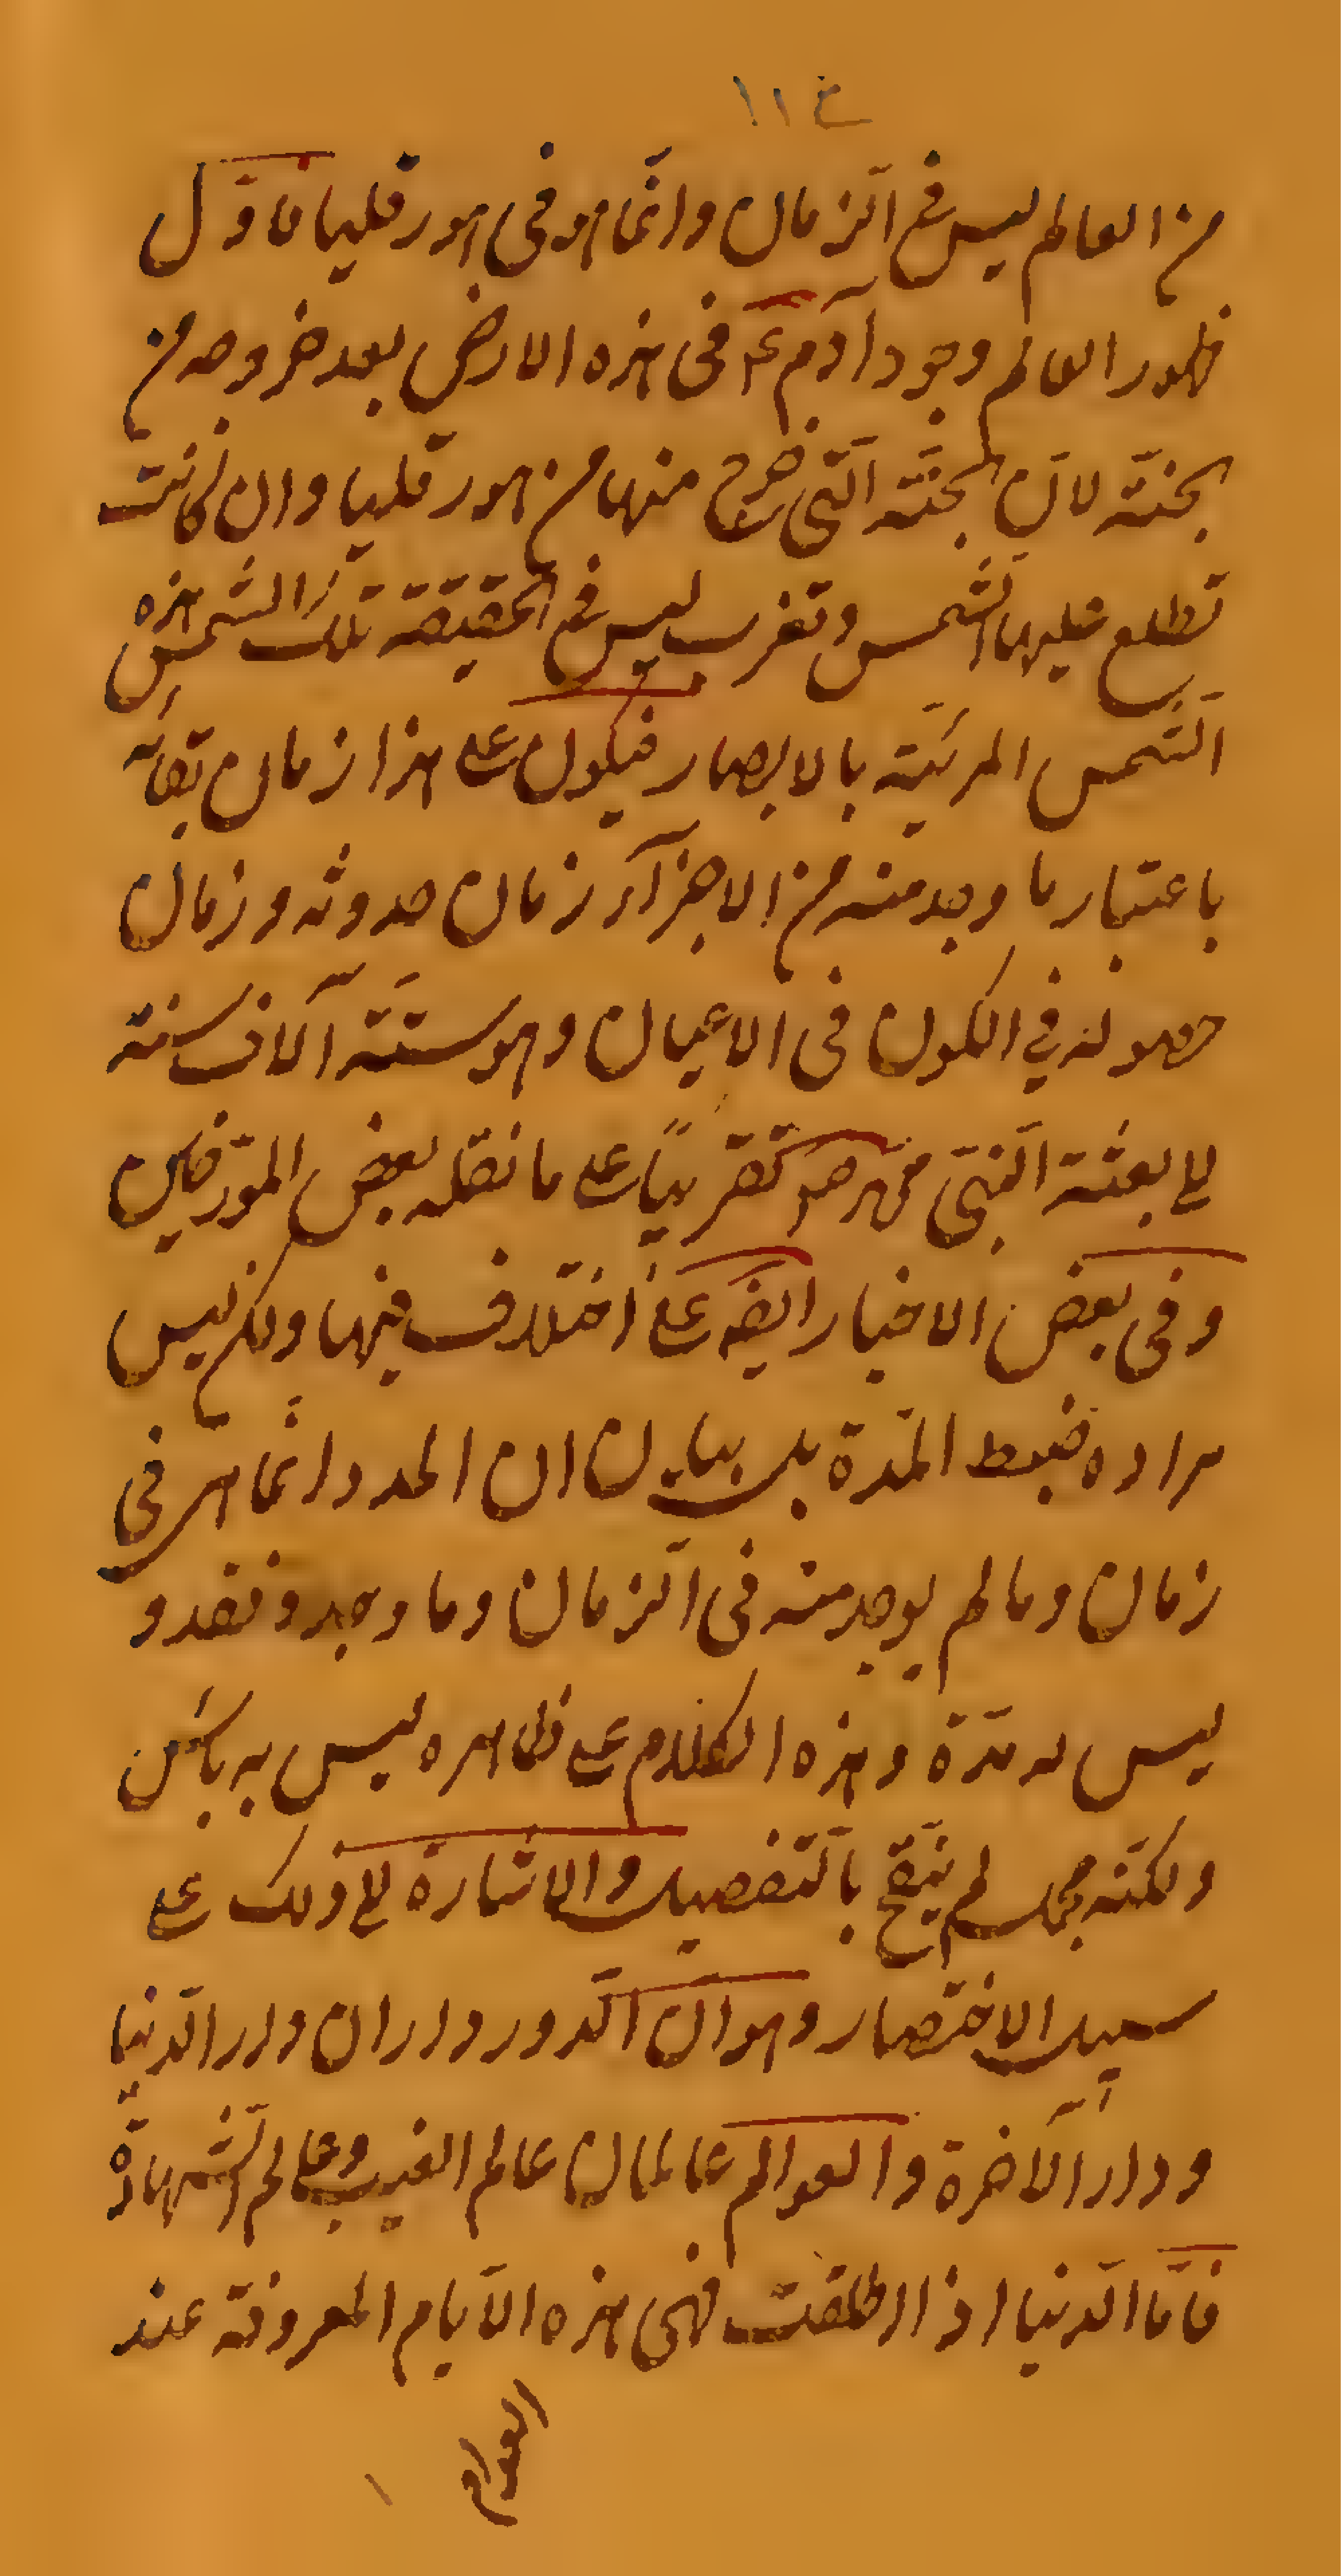 ١١٤
من العالم ليس في الزمان وانّما هو في هور قليا فاوّل
ظهور العالم وجود آدم ع في هذه الارض بعد خروجه من
الجنّة لانّ الجنّة الّتي خرج منها من هور قليا وان كانت
تطلع عليها الشّمس وتغرب ليس في الحقيقة تلك الشّمس هذه
الشّمس المرئيّة بالابصار فيكون على هذا زمان بقائه
باعتبار ما وجد منه من الاجزآء زمان حدوثه وزمان
حصوله في الكون في الاعيان وهو ستّة آلاف سنة
الى بعثة النّبي محمد ص تقريبًا على ما نقله بعض المورّخين
وفي بعض الاخبار ايضا على اختلاف فيها ولكن ليس
مراده ضبط المدّة بل بيان ان المدد انّما هي في
زمان وما لم يوجد منه في الزمان وما وجد وفقد و
ليس له مدّة وهذه الكلام على ظاهره ليس به باس
ولكنّه مجمل لم ينقّح بالتّفصيل والاشارة الى ذلك على
سبيل الاختصار وهو انّ الدور داران دار الدّنيا
ودار الآخرة والعوالم عالمان عالم الغيب وعالم الشّهادة
فامّا الدّنيا اذا اطلقت فهي هذه الايام المعروفة عند
العوام